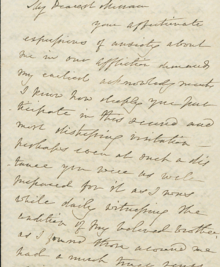 My dearest Miriam
your affectionate
expressions of anxiety about
me in our affliction demanded
my earliest acknowledgments
I know how deeply you
in this second and
most distressing visitation –
perhaps even at such a dis
tance you were as well
prepared for it as I was
while daily witnessing the
condition of my beloved Brother
as I joined those around me
had a much